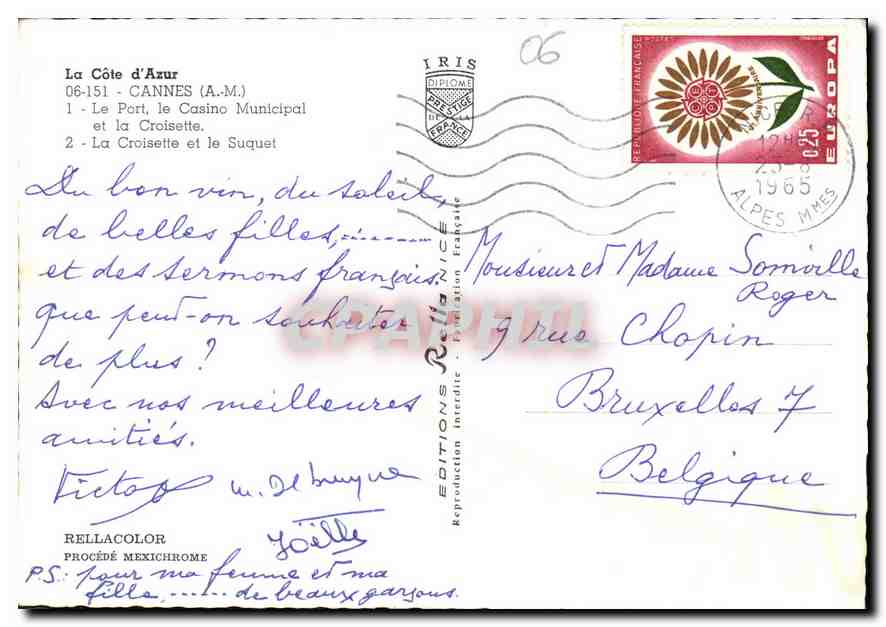 La Côte d'Azur
06-151 - CANNES (A.-M.)
1 - Le Port, le Casino Municipal
et la Croisette.
2 - La Croisette et le Suquet
IRIS
DIPLOME
PRESTIGE
DE LA
FRANCE
06
REPUBLIQUE FRANÇAISE
POSTES
EUROPA
0,25
CEPT
12H
1965
ALPES MMES
Du bon vin, du soleil,
de belles filles, ..........
et des sermons français.
que peut-on souhaiter
de plus ?
Avec nos meilleures
amitiés.
Victor
Joëlle
P.S.: pour ma femme et ma
fille, ...... de beaux garçons.
RELLACOLOR
PROCÉDÉ MEXICHROME
EDITIONS Rella NICE
Reproduction interdite - Fabrication Française
Monsieur et Madame Somville
Roger
9 rue Chopin
Bruxelles 7
Belgique
CPAPHIL